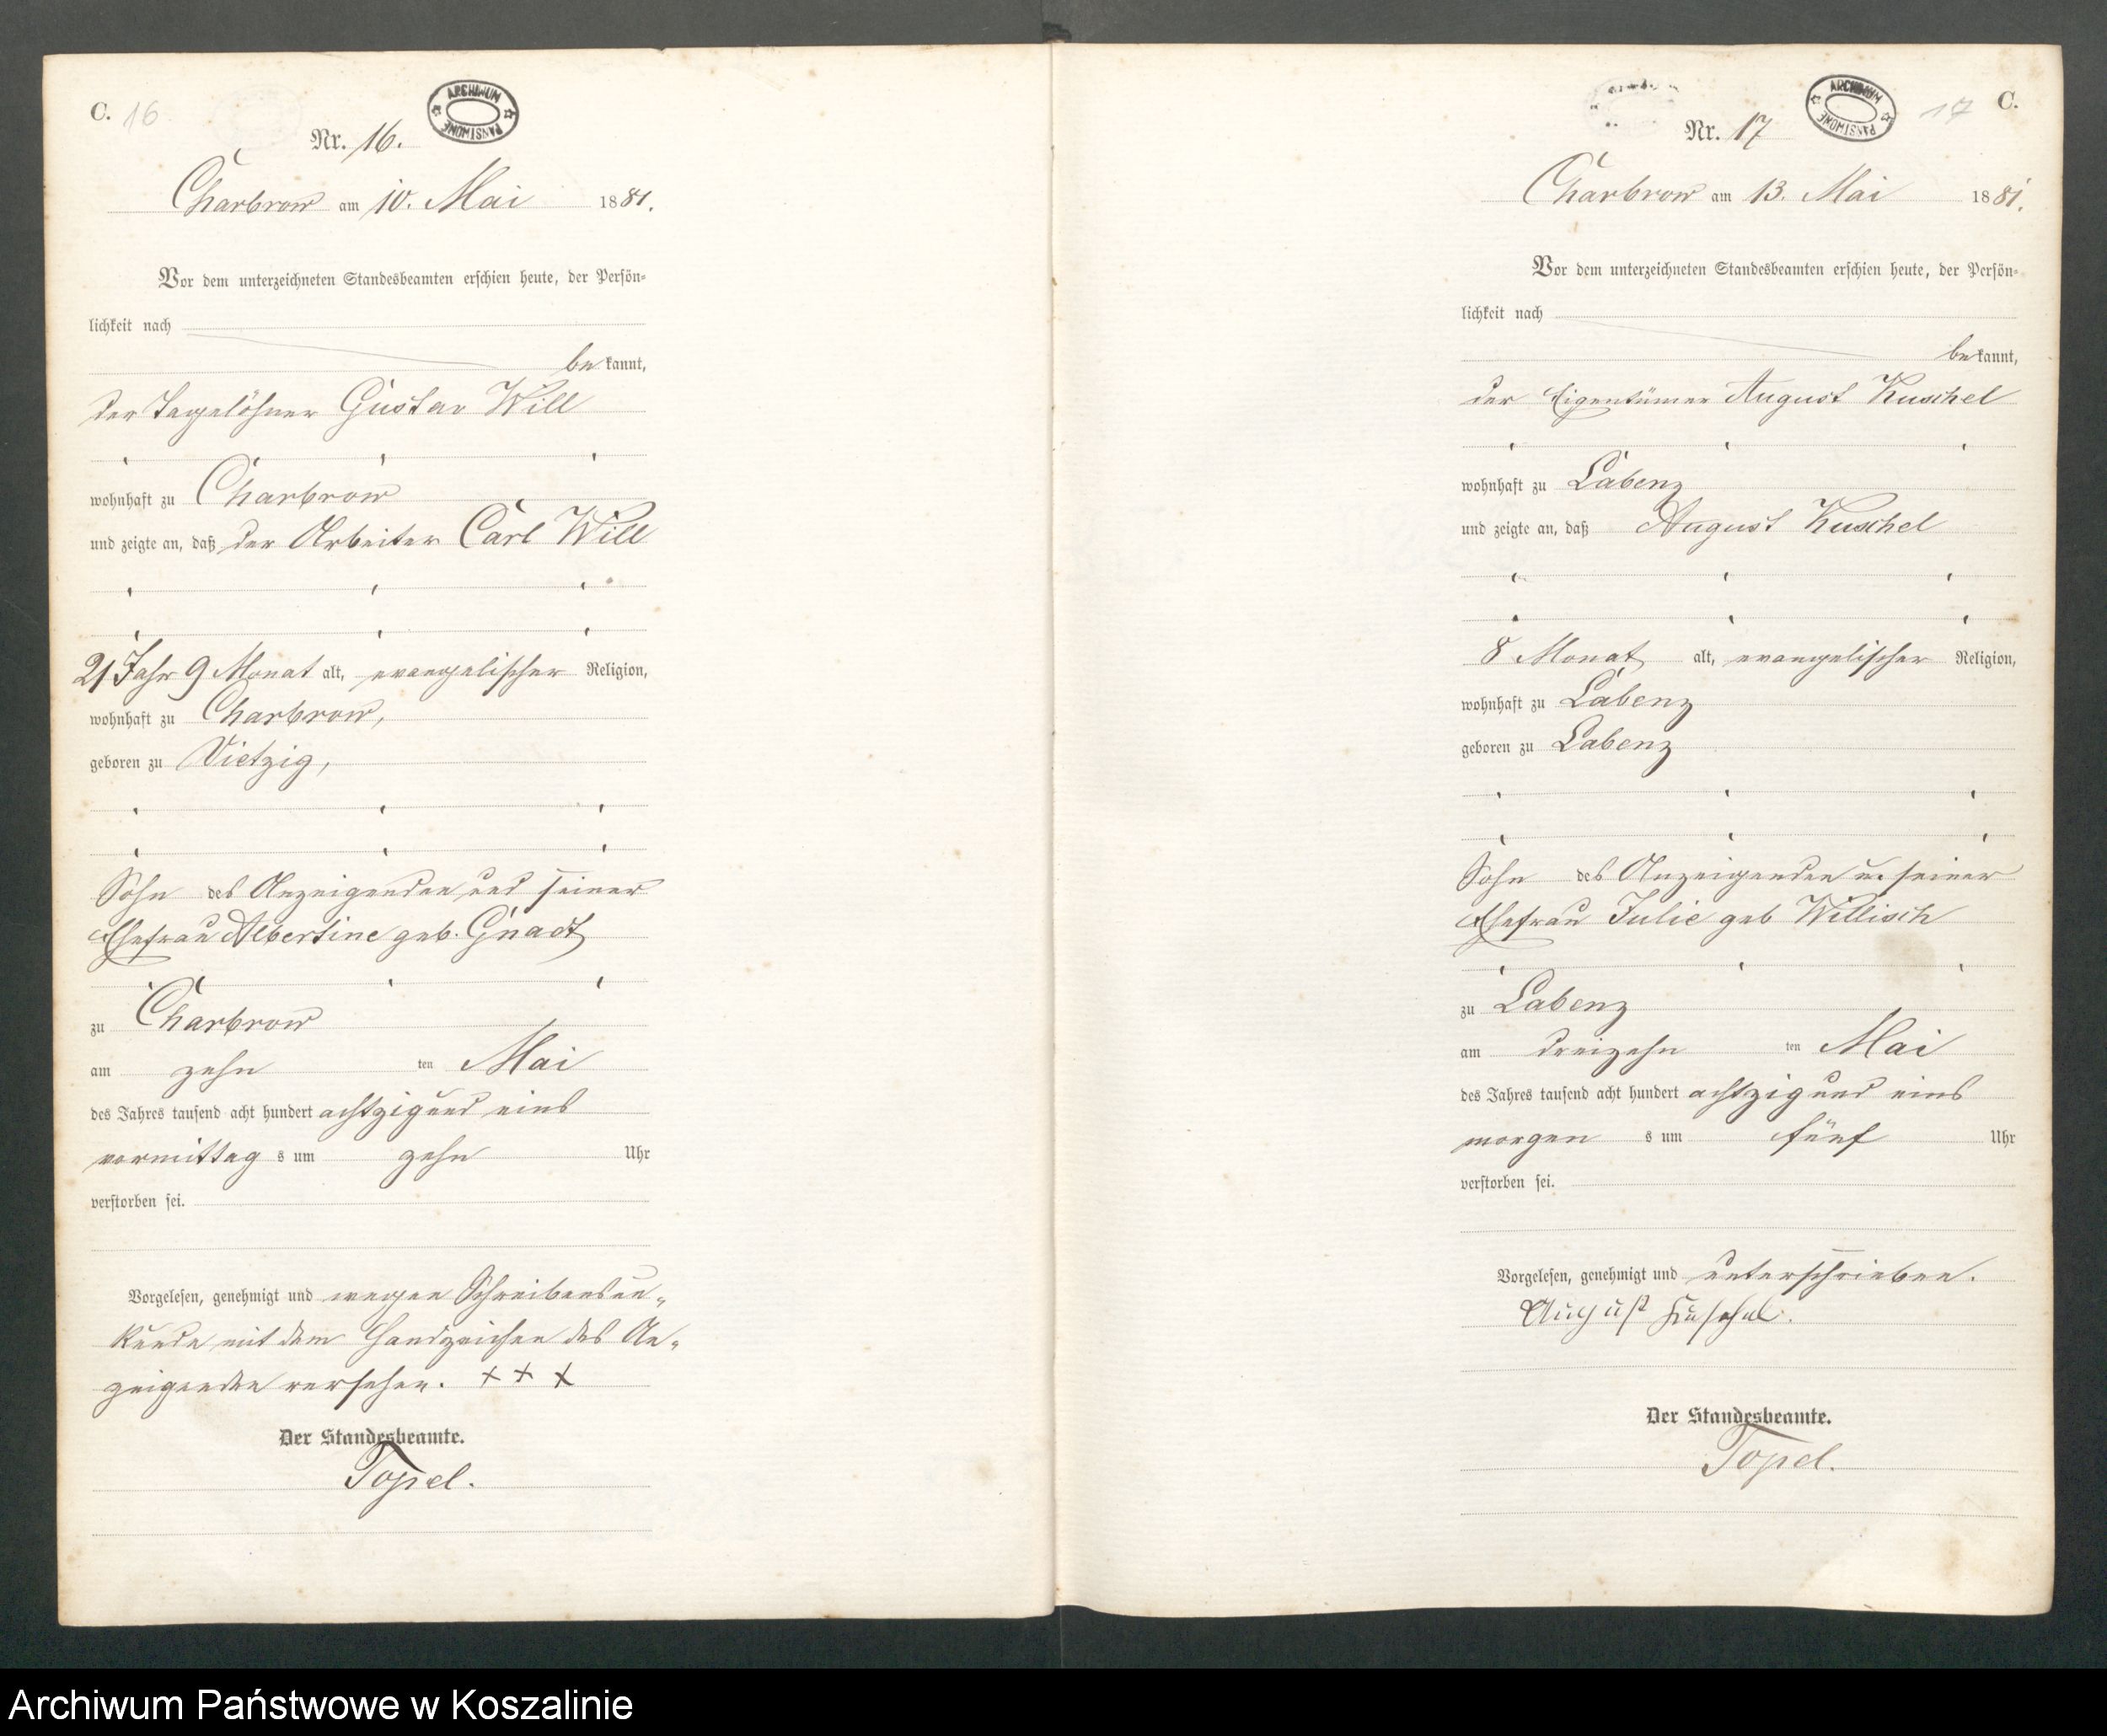 C. 16
ARCHIWUM PAŃSTWOWE
Nr. 16.
Charbrow am 10. Mai 1881.
Vor dem unterzeichneten Standesbeamten erschien heute, der Persön-
lichkeit nach
bekannt,
der Tagelöhner Gustav Will
wohnhaft zu Charbrow
und zeigte an, daß der Arbeiter Carl Will
21 Jahr 9 Monat alt, evangelischer Religion,
wohnhaft zu Charbrow,
geboren zu Vietzig,
Sohn des Anzeigenden und seiner
Ehefrau Albertine geb. Gnadt
zu Charbrow
am zehn ten Mai
des Jahres tausend acht hundert achtzig und eins
vormittag s um zehn Uhr
verstorben sei.
Vorgelesen, genehmigt und wegen Schreibensun-
kunde mit dem Handzeichen des An-
zeigenden versehen. + + +
Der Standesbeamte.
Topel.
17 C.
ARCHIWUM PAŃSTWOWE
Nr. 17
Charbrow am 13. Mai 1881.
Vor dem unterzeichneten Standesbeamten erschien heute, der Persön-
lichkeit nach
bekannt,
der Eigentümer August Kuschel
wohnhaft zu Labenz
und zeigte an, daß August Kuschel
8 Monat alt, evangelischer Religion,
wohnhaft zu Labenz
geboren zu Labenz
Sohn des Anzeigenden u. seiner
Ehefrau Julie geb Willisch
zu Labenz
am dreizehn ten Mai
des Jahres tausend acht hundert achtzig und eins
morgen s um fünf Uhr
verstorben sei.
Vorgelesen, genehmigt und unterschrieben.
August Kuschel.
Der Standesbeamte.
Topel.
Archiwum Państwowe w Koszalinie